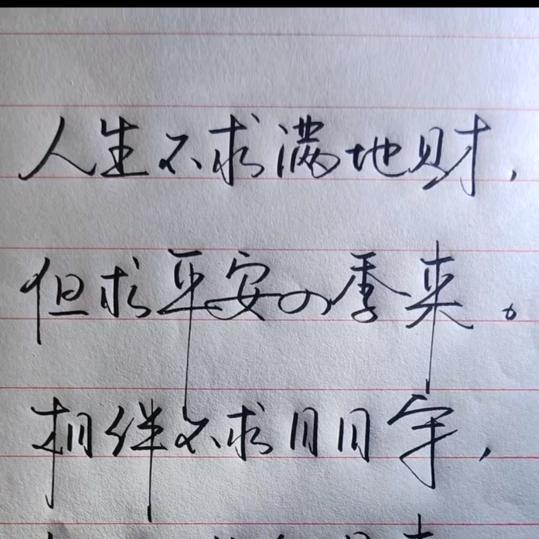 人生不求满地财，
但求平安四季来。
相伴不求日日守，